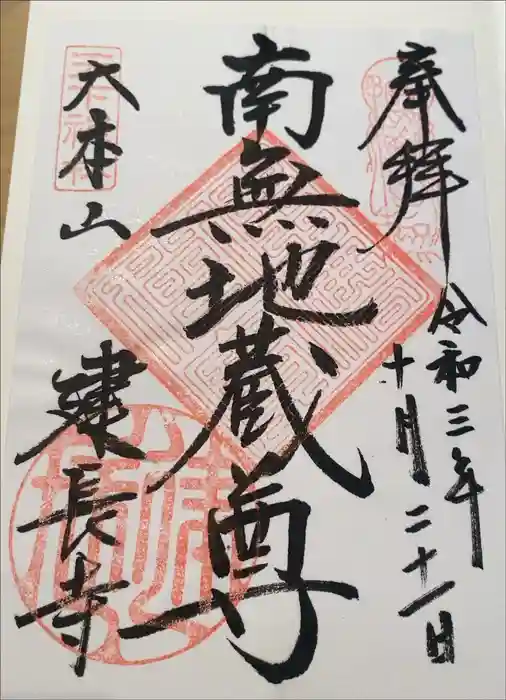 奉拝
令和三年
十月二十一日
南無地蔵尊
大本山
建長寺